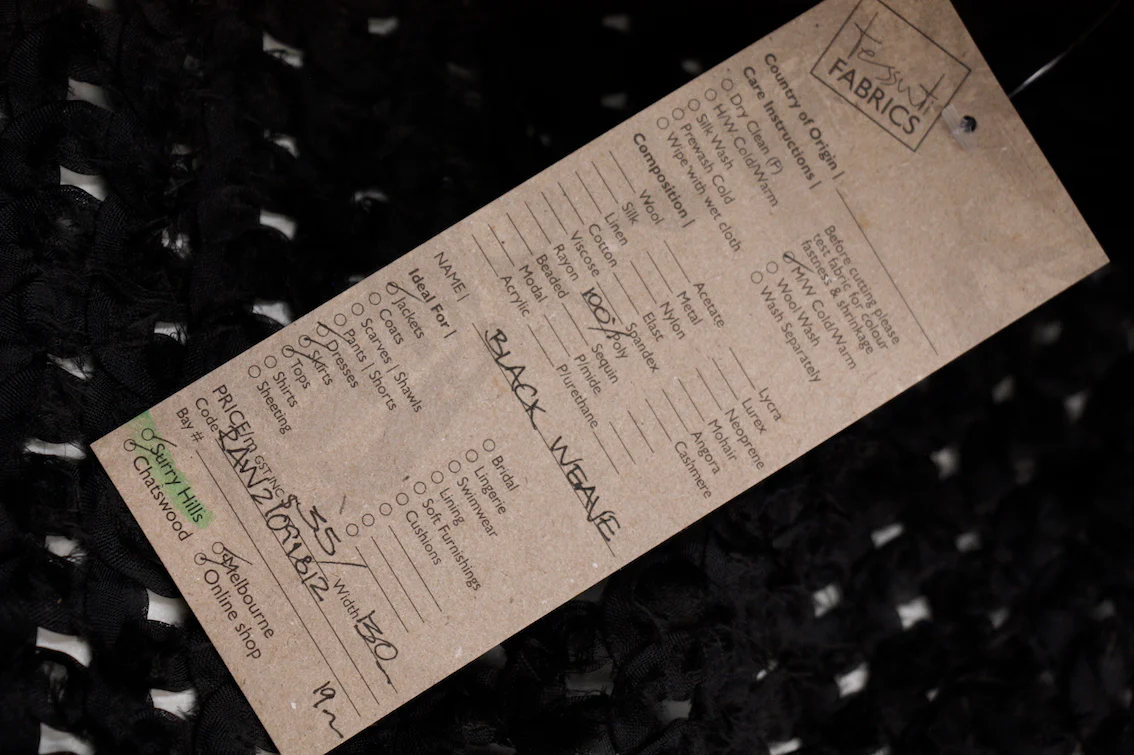 tessuti
FABRICS
Country of Origin |
Care Instructions |
Dry Clean (P)
H/W Cold/Warm
Silk Wash
Prewash Cold
Wipe with wet cloth
Before cutting please
test fabric for colour
fastness & shrinkage
M/W Cold/Warm
Wool Wash
Wash Separately
Composition |
Wool
Silk
Linen
Cotton
Viscose
Rayon
Beaded
Modal
Acrylic
Acetate
Metal
Nylon
Elast
Spandex
100/Poly
Sequin
P/mide
P/urethane
Lycra
Lurex
Neoprene
Mohair
Angora
Cashmere
NAME | BLACK WEAVE
Ideal For |
Jackets
Coats
Scarves | Shawls
Pants | Shorts
Dresses
Skirts
Tops
Shirts
Sheeting
Bridal
Lingerie
Swimwear
Lining
Soft Furnishings
Cushions
PRICE/m GST/NC $ 35/ Width 130
Code
Bay #
Surry Hills
Chatswood
Melbourne
Online shop
19m